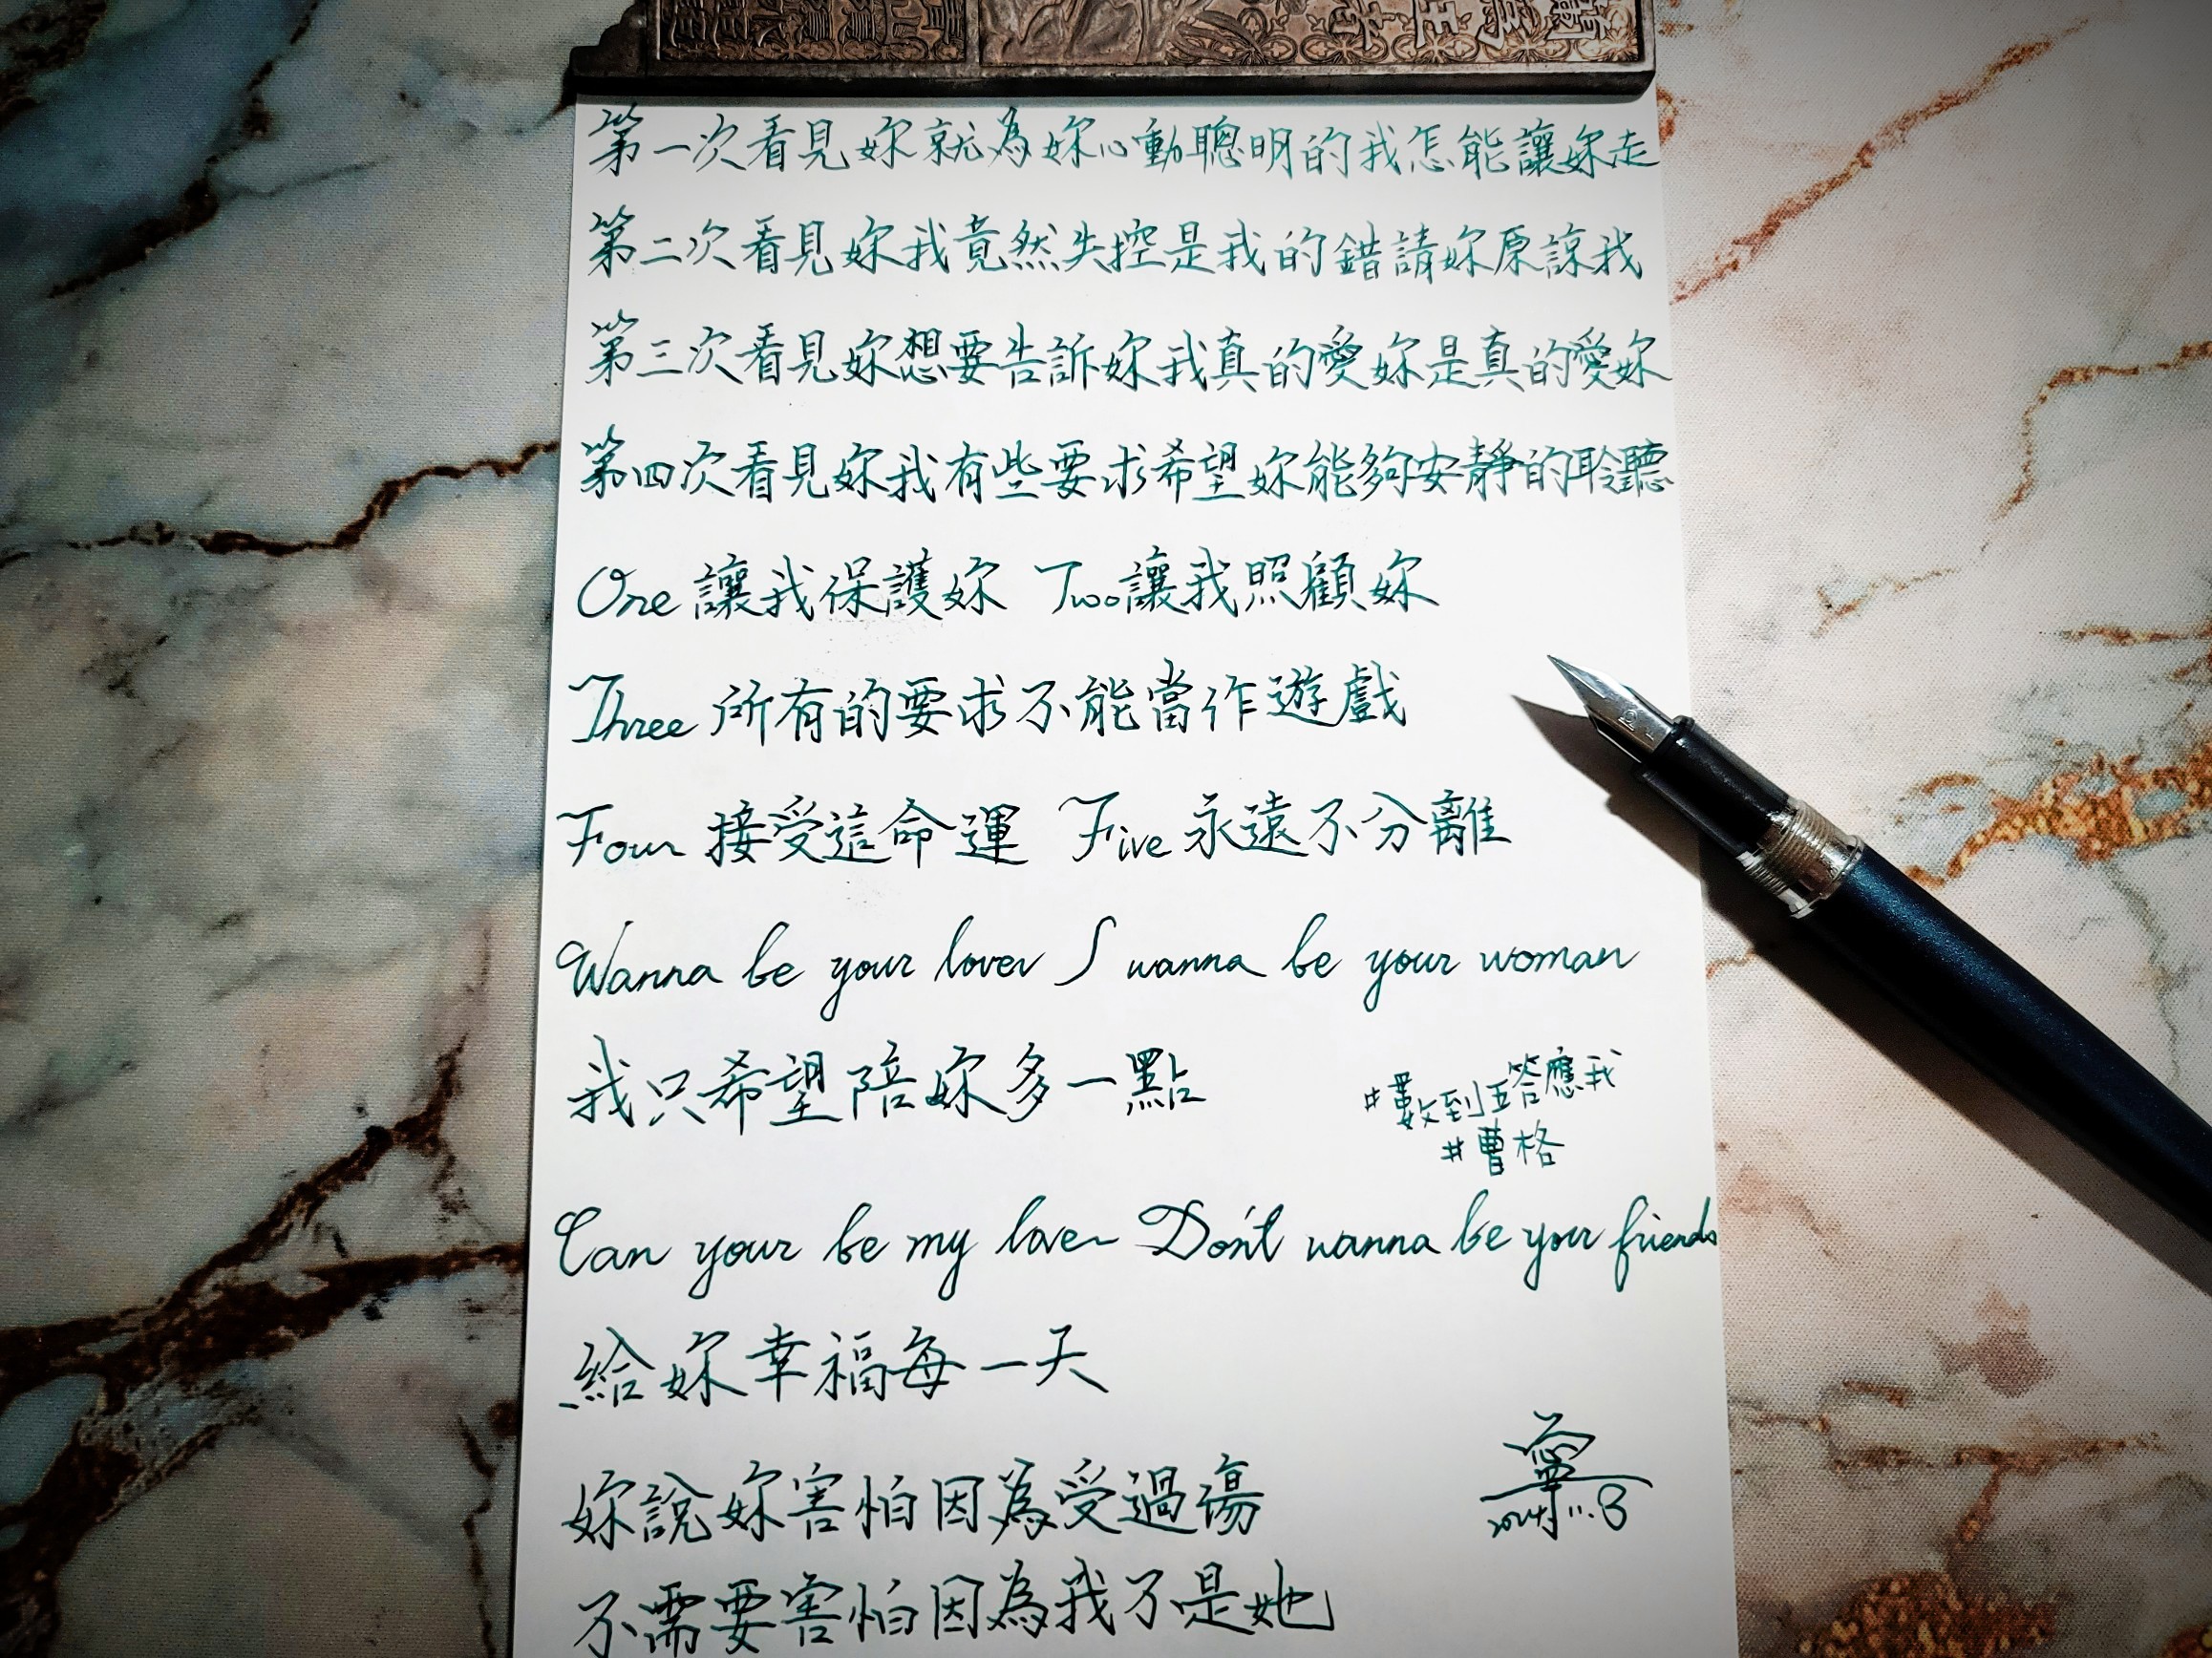 第一次看見妳就為妳心動聰明的我怎能讓妳走
第二次看見妳我竟然失控是我的錯請妳原諒我
第三次看見妳想要告訴妳我真的愛妳是真的愛妳
第四次看見妳我有些要求希望妳能夠安靜的聆聽
One 讓我保護妳 Two 讓我照顧妳
Three 所有的要求不能當作遊戲
Four 接受這命運 Five 永遠不分離
Wanna be your lover I wanna be your woman
我只希望陪妳多一點
#數到五答應我
#曹格
Can your be my lover Don't wanna be your friends
給妳幸福每一天
妳說妳害怕因為受過傷
不需要害怕因為我不是她